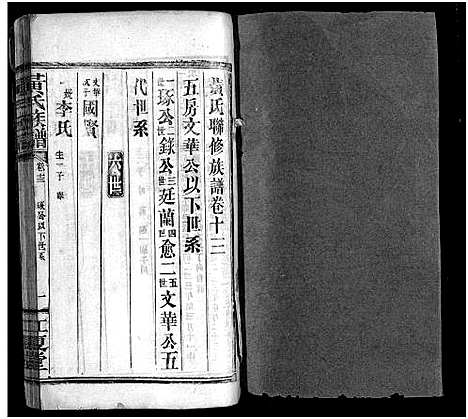 黃氏聯修族譜卷十三
五房文華公以下世系
一世琢公二世錄公三世廷蘭四世愈二五世文華公五
代世系
六世
文華子國賢
娶李氏
生一子
黃氏族譜
卷十三
以下世系
一
江夏堂